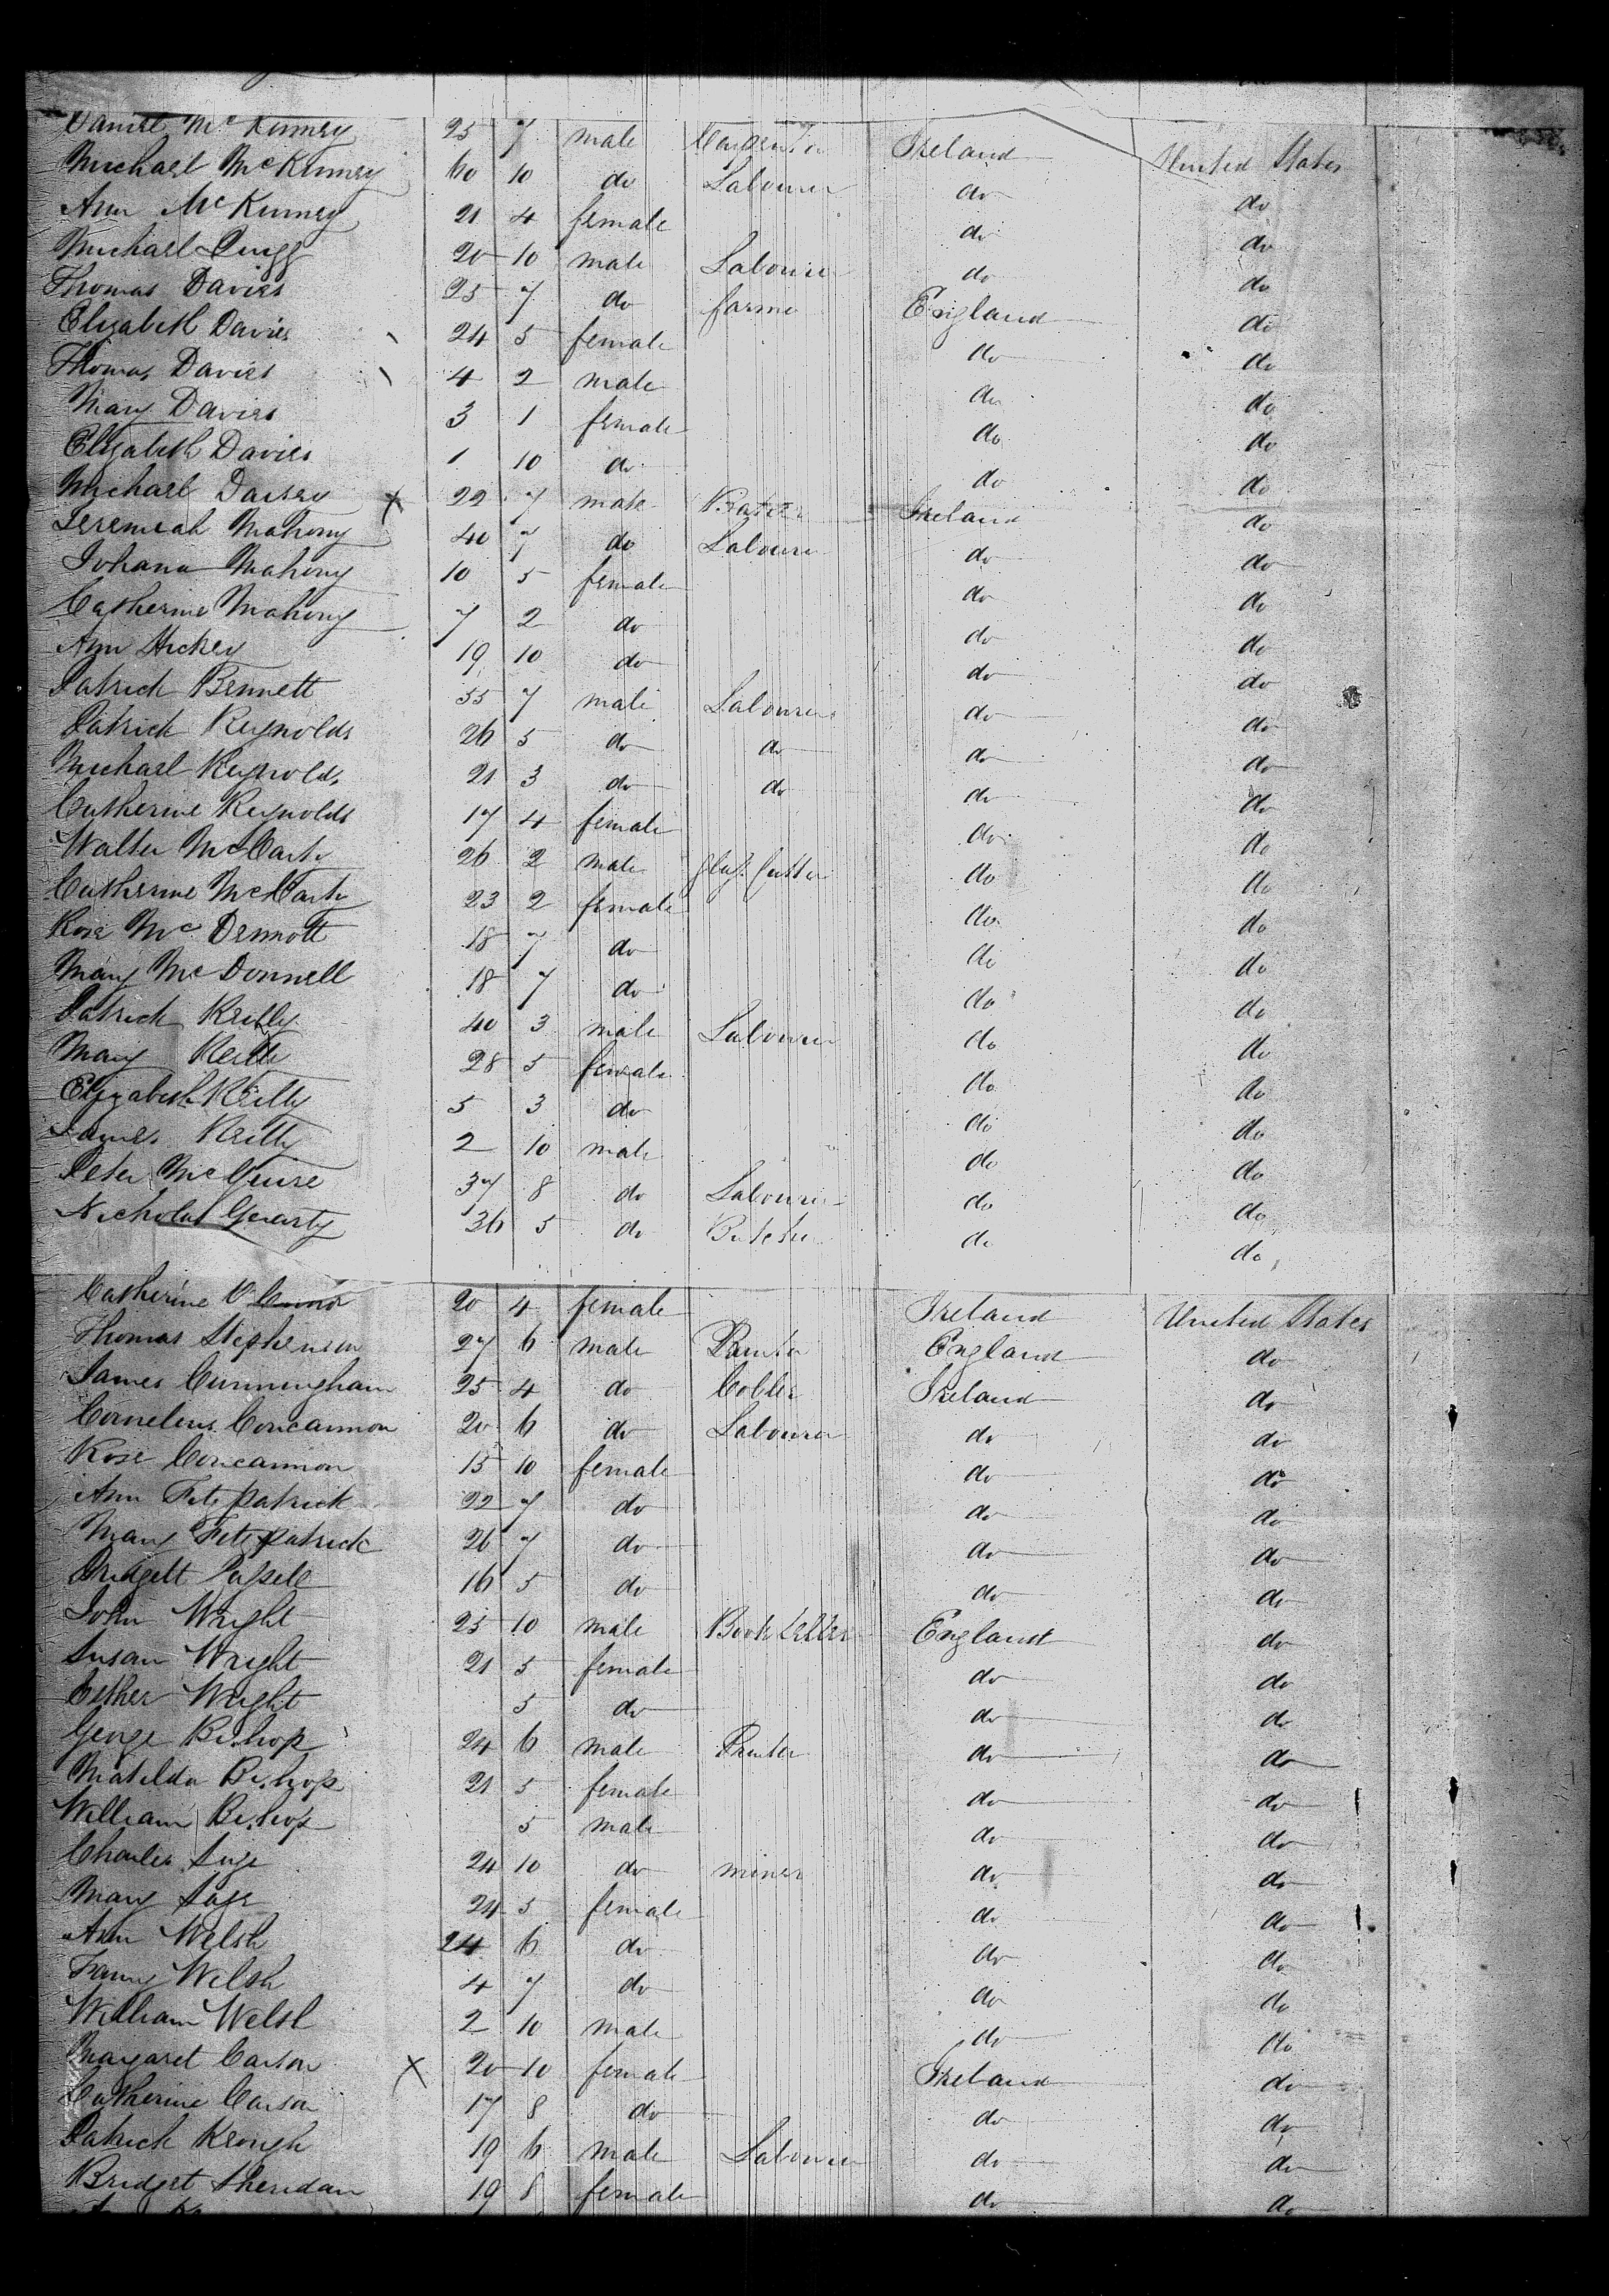 Daniel McKinney 25 7 male Carpenter Ireland United States
Michael McKinney 60 10 do Labourer do do
Ann McKinney 21 4 female do do
Michael Quigg 20 10 male Labourer do do
Thomas Davies 25 7 do farmer England do
Elizabeth Davies 24 5 female do do
Thomas Davies 4 2 male do do
Mary Davies 3 1 female do do
Elizabeth Davies 1 10 do do do
Michael 22 7 male Ireland do
Jeremiah Mahony 40 7 do Labourer do do
Johana Mahony 10 5 female do do
Catherine Mahony 7 2 do do do
Ann Hickey 19 10 do do do
Patrick Bennett 55 7 male Labourer do do
Patrick Reynolds 26 5 do do do do
Michael Reynolds 21 3 do do do do
Catherine Reynolds 17 4 female do do
Walter McCarty 26 2 male glass Cutter do do
Catherine McCarty 23 2 female do do
Rose McDermott 18 7 do do do
Mary McDonnell 18 7 do do do
Patrick Reilly 40 3 male Labourer do do
Mary Reilly 28 5 female do do
Elizabeth Reilly 5 3 do do do
James Reilly 2 10 male do do
Peter McGuire 37 8 do Labourer do do
Nicholas Gerarty 36 5 do Butcher do do
Catherine O'Connor 20 4 female Ireland United States
Thomas Stephenson 27 6 male England do
James Cunningham 25 4 do Cobler Ireland do
Cornelius Concannon 20 6 do Labourer do do
Rose Concannon 15 10 female do do
Ann Fitzpatrick 22 7 do do do
Mary Fitzpatrick 26 7 do do do
Bridgett 16 5 do do do
John Wright 25 10 male Book Seller England do
Susan Wright 21 5 female do do
Esther Wright 5 do do do
George Bishop 24 6 male do do
Matilda Bishop 21 5 female do do
William Bishop 5 male do do
Charles Sage 24 10 do miner do do
Mary Sage 24 5 female do do
Ann Welsh 24 6 do do do
Fanny Welsh 4 7 do do do
William Welsh 2 10 male do do
Margaret Carson X 20 10 female Ireland do
Catherine Carson 17 8 do do do
Patrick Keough 19 6 male Labourer do do
Bridget Sheridan 19 8 female do do